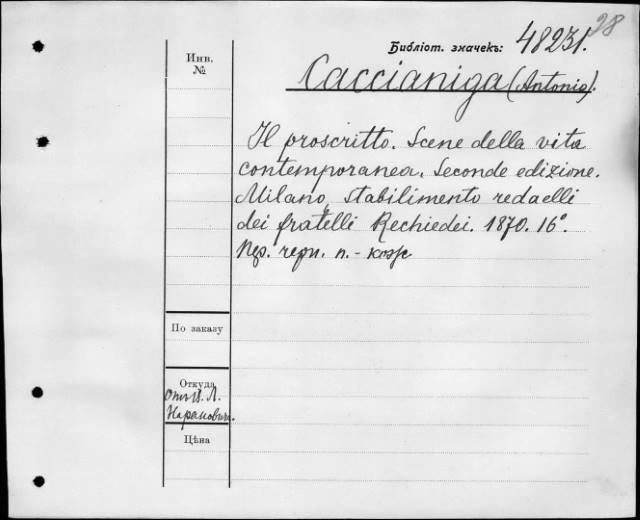 28
Библіот. значекъ: 48231.
Инв. №
Caccianiga (Antonio).
Il proscritto. Scene della vita
contemporanea. Seconde edizione.
Milano, stabilimento redaelli
dei fratelli Rechiedei. 1870. 16°.
Пер. черн. п.-кож
По заказу
Откуда
Отъ П. Л.
Нарановича.
Цѣна